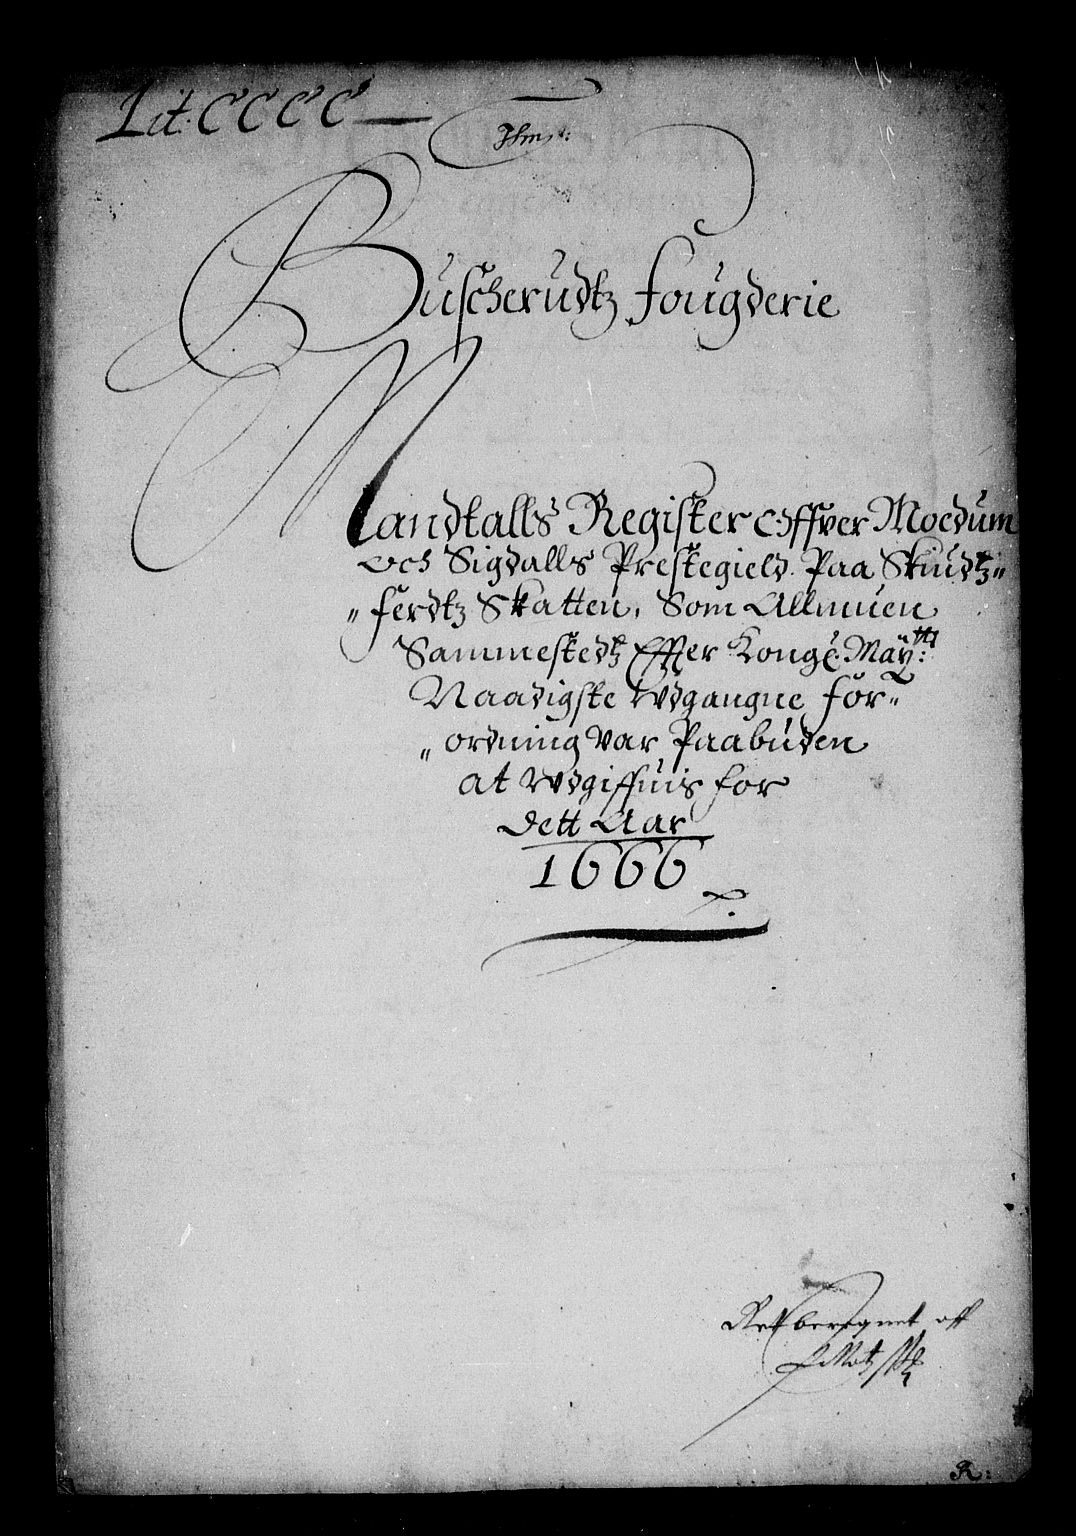 Lit. C C C C
Buscherudtz fougderie
Mandtalls Register Offver Moedum
och Sigdalls Prestegield. Paa Skiudtz„
„ferdtz Skatten, Som Allmuen
Sammestedtz Effter Kongē: Maÿ:tt
Naadigste wdgangne för„
„ordning var Paabuden
at wdgiffuis for
dett Aar
1666
Ret beregnet aff
R: